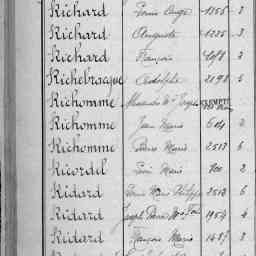 Richard Louis Ange 1355 3
Richard Auguste 1235 3
Richard François 1078 3
Richebracque Adolphe 2198 5
Richomme Alexandre Mie Joseph EXEMPTÉ
Richomme Jean Marie 604 2
Richomme Pierre Marie 2517 6
Ricordel Louis Marie 700 2
Ridard Louis Marie Philippe 2513 6
Ridard Joseph Pierre Mie 1954 4
Ridard François Marie 1487 3